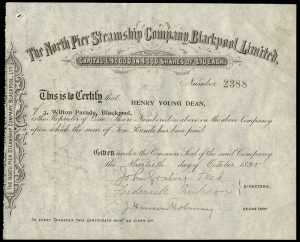 The North Pier Steamship Company, Blackpool, Limited.
CAPITAL £45000 IN 4500 SHARES OF £10 EACH.
Number 2388
This is to Certify that
HENRY YOUNG DEAN,
of 2, Wilton Parade, Blackpool,
is the Proprietor of One Share Numbered as above in the above Company
upon which the sum of Ten Pounds has been paid.
Given under the Common Seal of the said Company
the Thirtieth day of October 1895
John
Frederick
DIRECTORS.
SECRETARY
ON EVERY TRANSFER THIS CERTIFICATE MUST BE GIVEN UP.
THE NORTH PIER STEAMSHIP COMPANY, BLACKPOOL, LTD